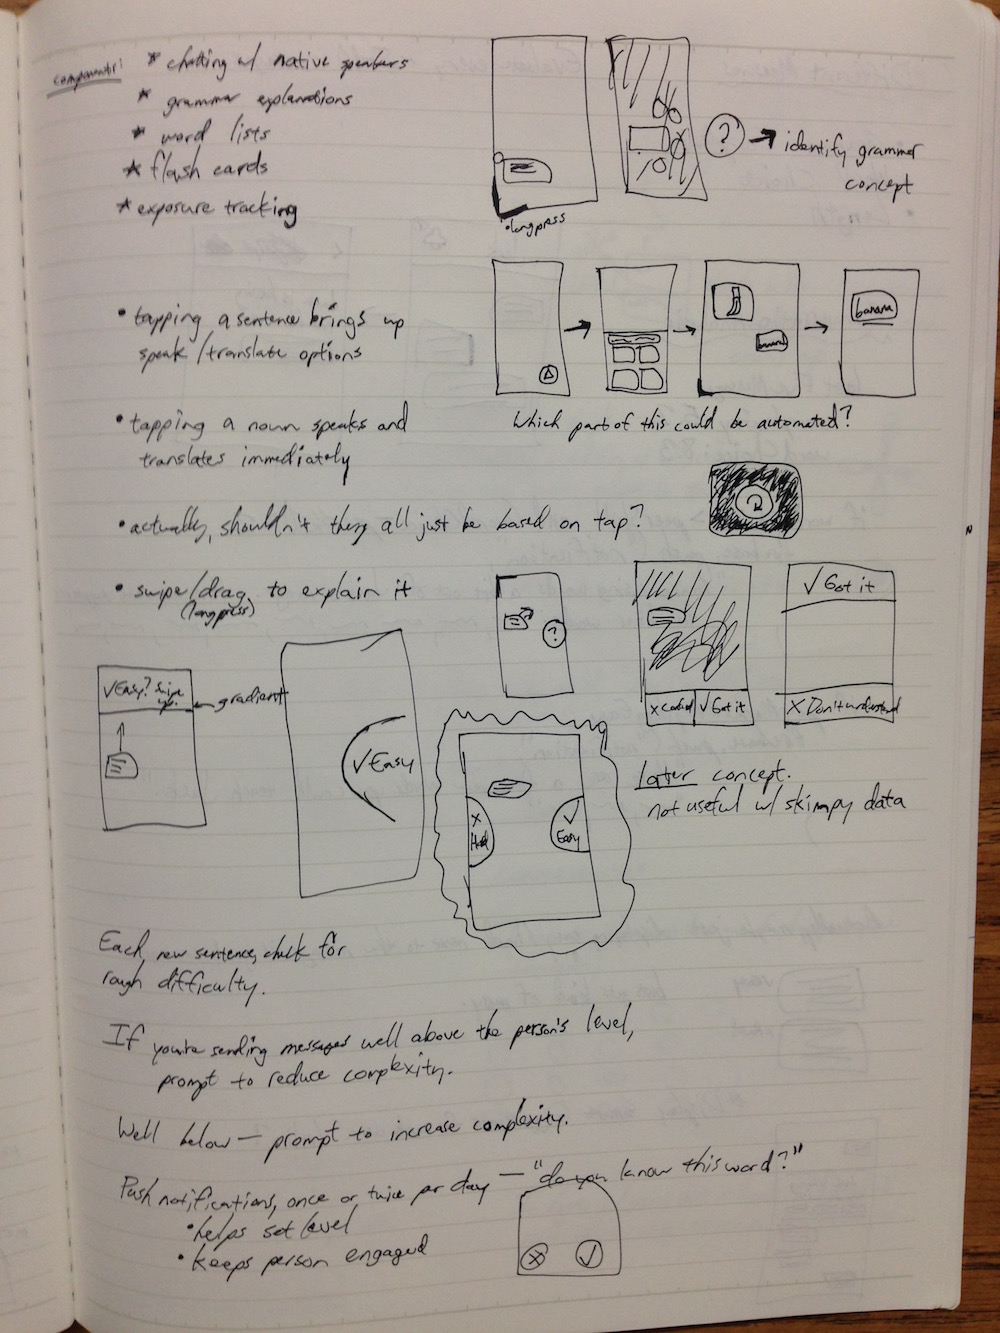 components:
* chatting w/ native speakers
* grammar explanations
* word lists
* flash cards
* exposure tracking
• longpress
? → identify grammer
concept
• tapping a sentence brings up
speak/translate options
banana
banana
Which part of this could be automated?
• tapping a noun speaks and
translates immediately
• actually, shouldn't they all just be based on tap?
• swipe/drag to explain it
(longpress)
?
X
✓ Got it
✓ Got it
X Don't understand
✓ Easy? Swipe
up.
← gradient
✓ Easy
X
Hard
✓
Easy
Later concept.
not useful w/ skimpy data
Each new sentence, check for
rough difficulty.
If you're sending messages well above the person's level,
prompt to reduce complexity.
Well below — prompt to increase complexity.
Push notifications, once or twice per day — "do you know this word?"
• helps set level
• keeps person engaged
X ✓